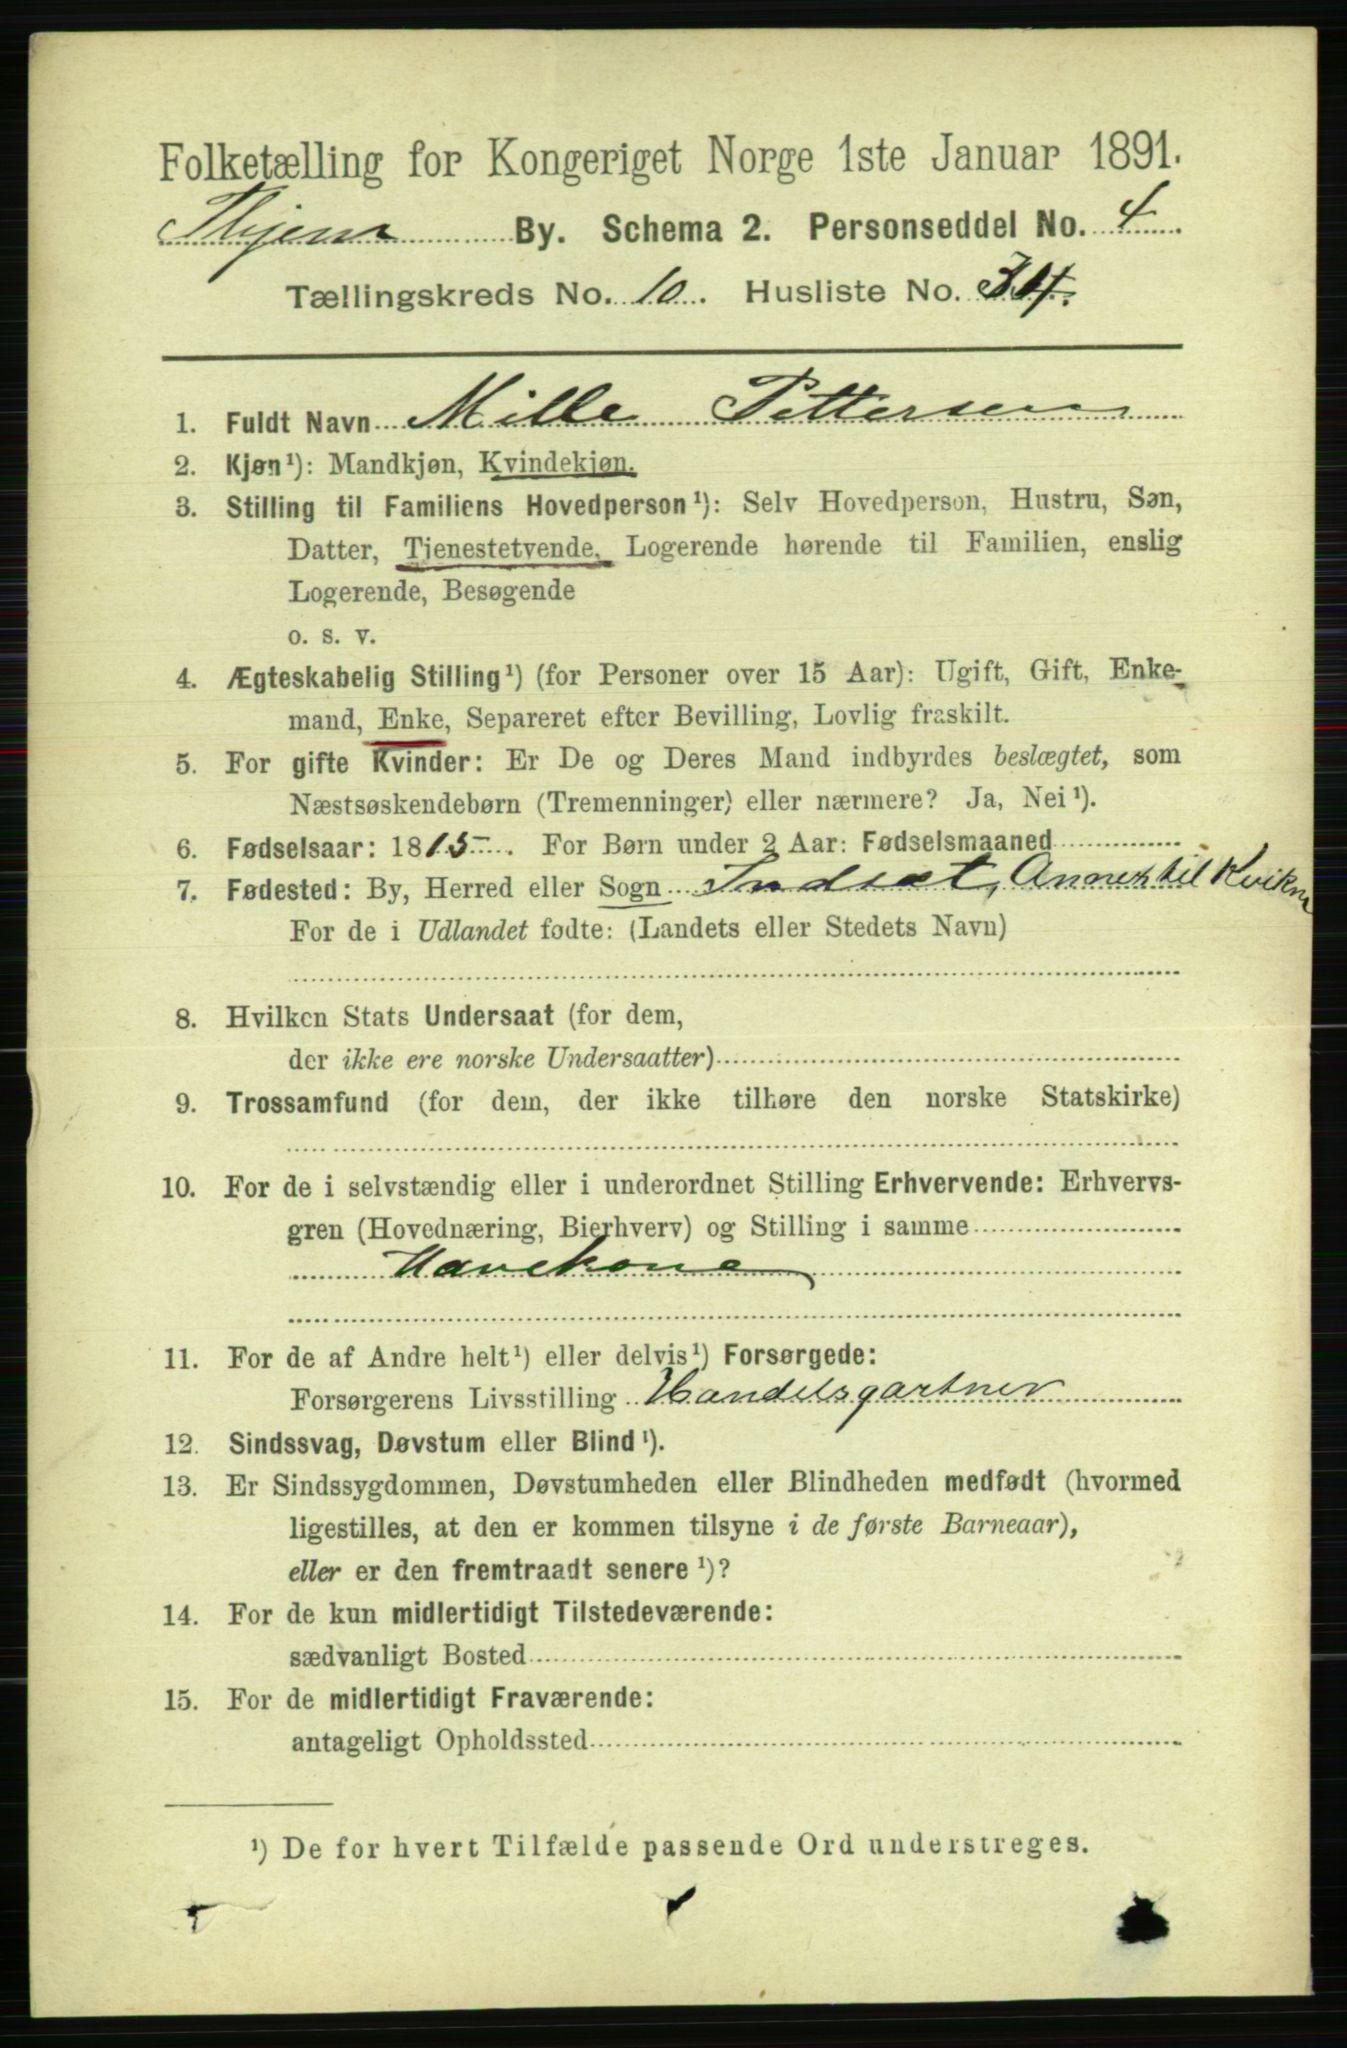 Folketælling for Kongeriget Norge 1ste Januar 1891.
Thjem By. Schema 2. Personseddel No. 4
Tællingskreds No. 10. Husliste No. 34.
1. Fuldt Navn Mille Pettersen
2. Kjøn¹): Mandkjøn, Kvindekjøn.
3. Stilling til Familiens Hovedperson¹): Selv Hovedperson, Hustru, Søn,
Datter, Tjenestetyende, Logerende hørende til Familien, enslig
Logerende, Besøgende
o. s. v.
4. Ægteskabelig Stilling¹) (for Personer over 15 Aar): Ugift, Gift, Enke-
mand, Enke, Separeret efter Bevilling, Lovlig fraskilt.
5. For gifte Kvinder: Er De og Deres Mand indbyrdes beslægtet, som
Næstsøskendebørn (Tremenninger) eller nærmere? Ja, Nei¹).
6. Fødselsaar: 1815. For Børn under 2 Aar: Fødselsmaaned
7. Fødested: By, Herred eller Sogn Indset, Annex til Kvikne
For de i Udlandet fødte: (Landets eller Stedets Navn)
8. Hvilken Stats Undersaat (for dem,
der ikke ere norske Undersaatter)
9. Trossamfund (for dem, der ikke tilhøre den norske Statskirke)
10. For de i selvstændig eller i underordnet Stilling Erhvervende: Erhvervs-
gren (Hovednæring, Bierhverv) og Stilling i samme
Havekone
11. For de af Andre helt¹) eller delvis¹) Forsørgede:
Forsørgerens Livsstilling Handelsgartner
12. Sindssvag, Døvstum eller Blind¹).
13. Er Sindssygdommen, Døvstumheden eller Blindheden medfødt (hvormed
ligestilles, at den er kommen tilsyne i de første Barneaar),
eller er den fremtraadt senere¹)?
14. For de kun midlertidigt Tilstedeværende:
sædvanligt Bosted
15. For de midlertidigt Fraværende:
antageligt Opholdssted
¹) De for hvert Tilfælde passende Ord understreges.